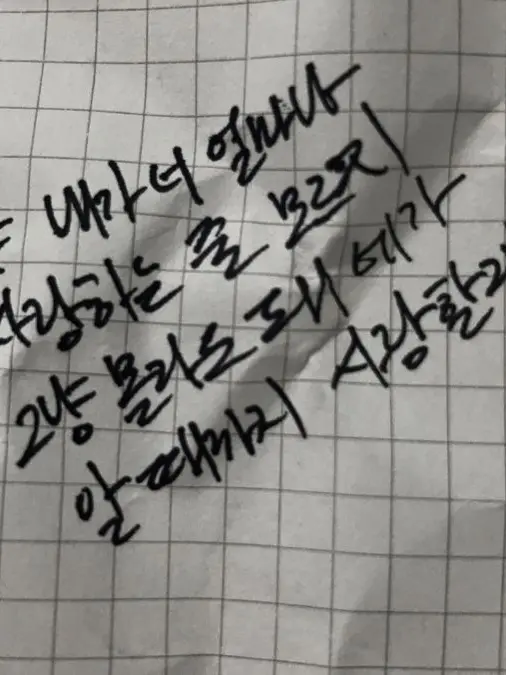 내가 너 얼마나
사랑하는 줄 모르지
그냥 몰라도 돼 네가
알 때까지 사랑할게